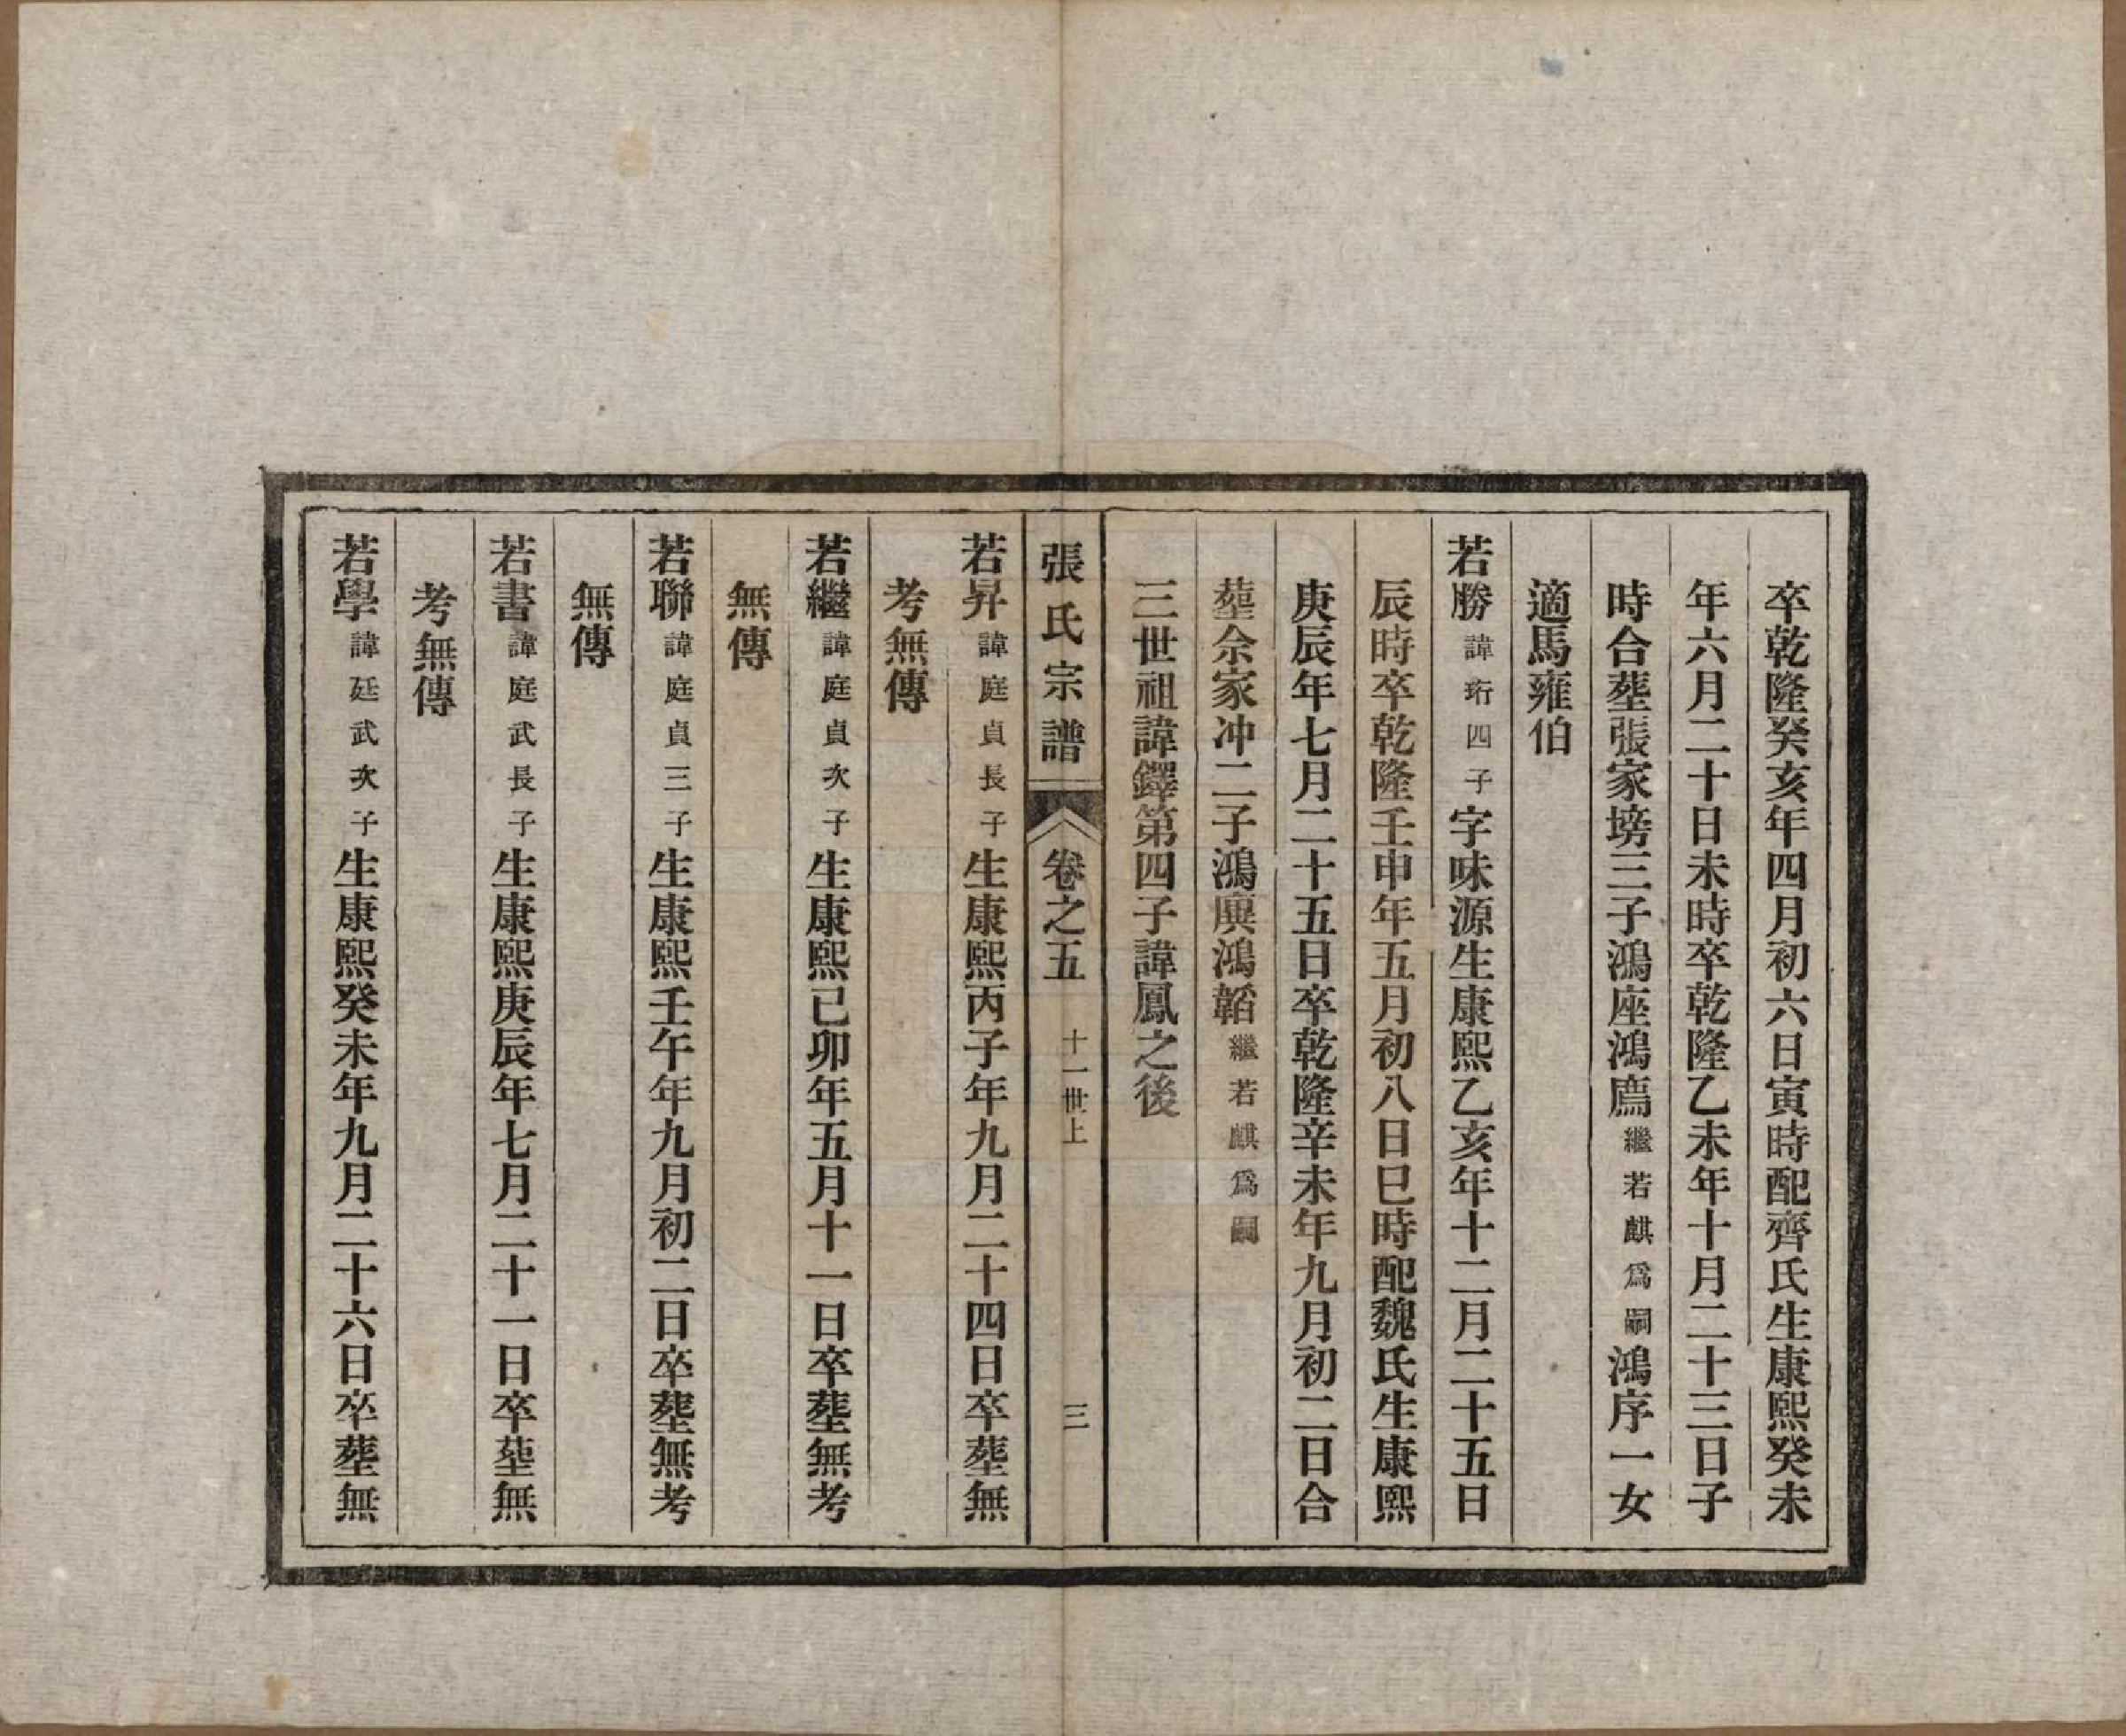 卒乾隆癸亥年四月初六日寅時配齊氏生康熙癸未
年六月二十日未時卒乾隆乙未年十月二十三日子
時合塟張家塝三子鴻座鴻廌繼若麒爲嗣鴻序一女
適馬雍伯
若勝諱珩四子字味源生康熙乙亥年十二月二十五日
辰時卒乾隆壬申年五月初八日巳時配魏氏生康熙
庚辰年七月二十五日卒乾隆辛未年九月初二日合
塟佘家冲二子鴻廙鴻韜繼若麒爲嗣
三世祖諱鐸第四子諱鳳之後
張氏宗譜 卷之五 十一世上 三
若昇諱庭貞長子生康熙丙子年九月二十四日卒塟無
考無傳
若繼諱庭貞次子生康熙己卯年五月十一日卒塟無考
無傳
若聯諱庭貞三子生康熙壬午年九月初二日卒塟無考
無傳
若書諱庭武長子生康熙庚辰年七月二十一日卒塟無
考無傳
若學諱廷武次子生康熙癸未年九月二十六日卒塟無